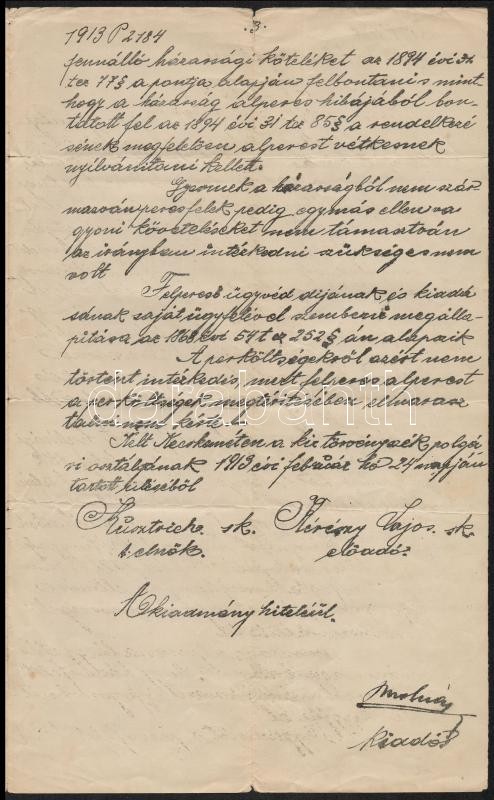 .3.
1913 P 2184
fennálló házassági köteléket az 1894 évi 31
tcz 77§ a pontja alapján felbontani s mint
hogy a házasság alperes hibájából bon
tatott fel az 1894 évi 31 tcz 85§ a rendelkezé
sének megfelelően alperest vétkesnek
nyilvánitani kellett.
Gyermek a házasságból nem szár
mazván peresfelek pedig egymás ellen va
gyoni követeléseket nem támasztván
az irányban intézkedni szükséges nem
volt
Felperesi ügyvéd dijának és kiadá
sának saját ügyfelével szembeni megálla
pitása az 1868 évi 54 tcz 252§ án alapszik
A perköltségekről azért nem
történt intézkedés, mert felperes alperest
a perköltségek megtéritésében elmarasz
talni nem kérte.
Kelt Kecskeméten a kir törvényszék polgá
ri osztályának 1913 évi február hó 24 napján
tartott üléséből
Kusztrich sk. Kérészy Lajos. sk.
t. elnök. előadó.
A kiadmány hiteléül.
Molnár
kiadó
darabanth